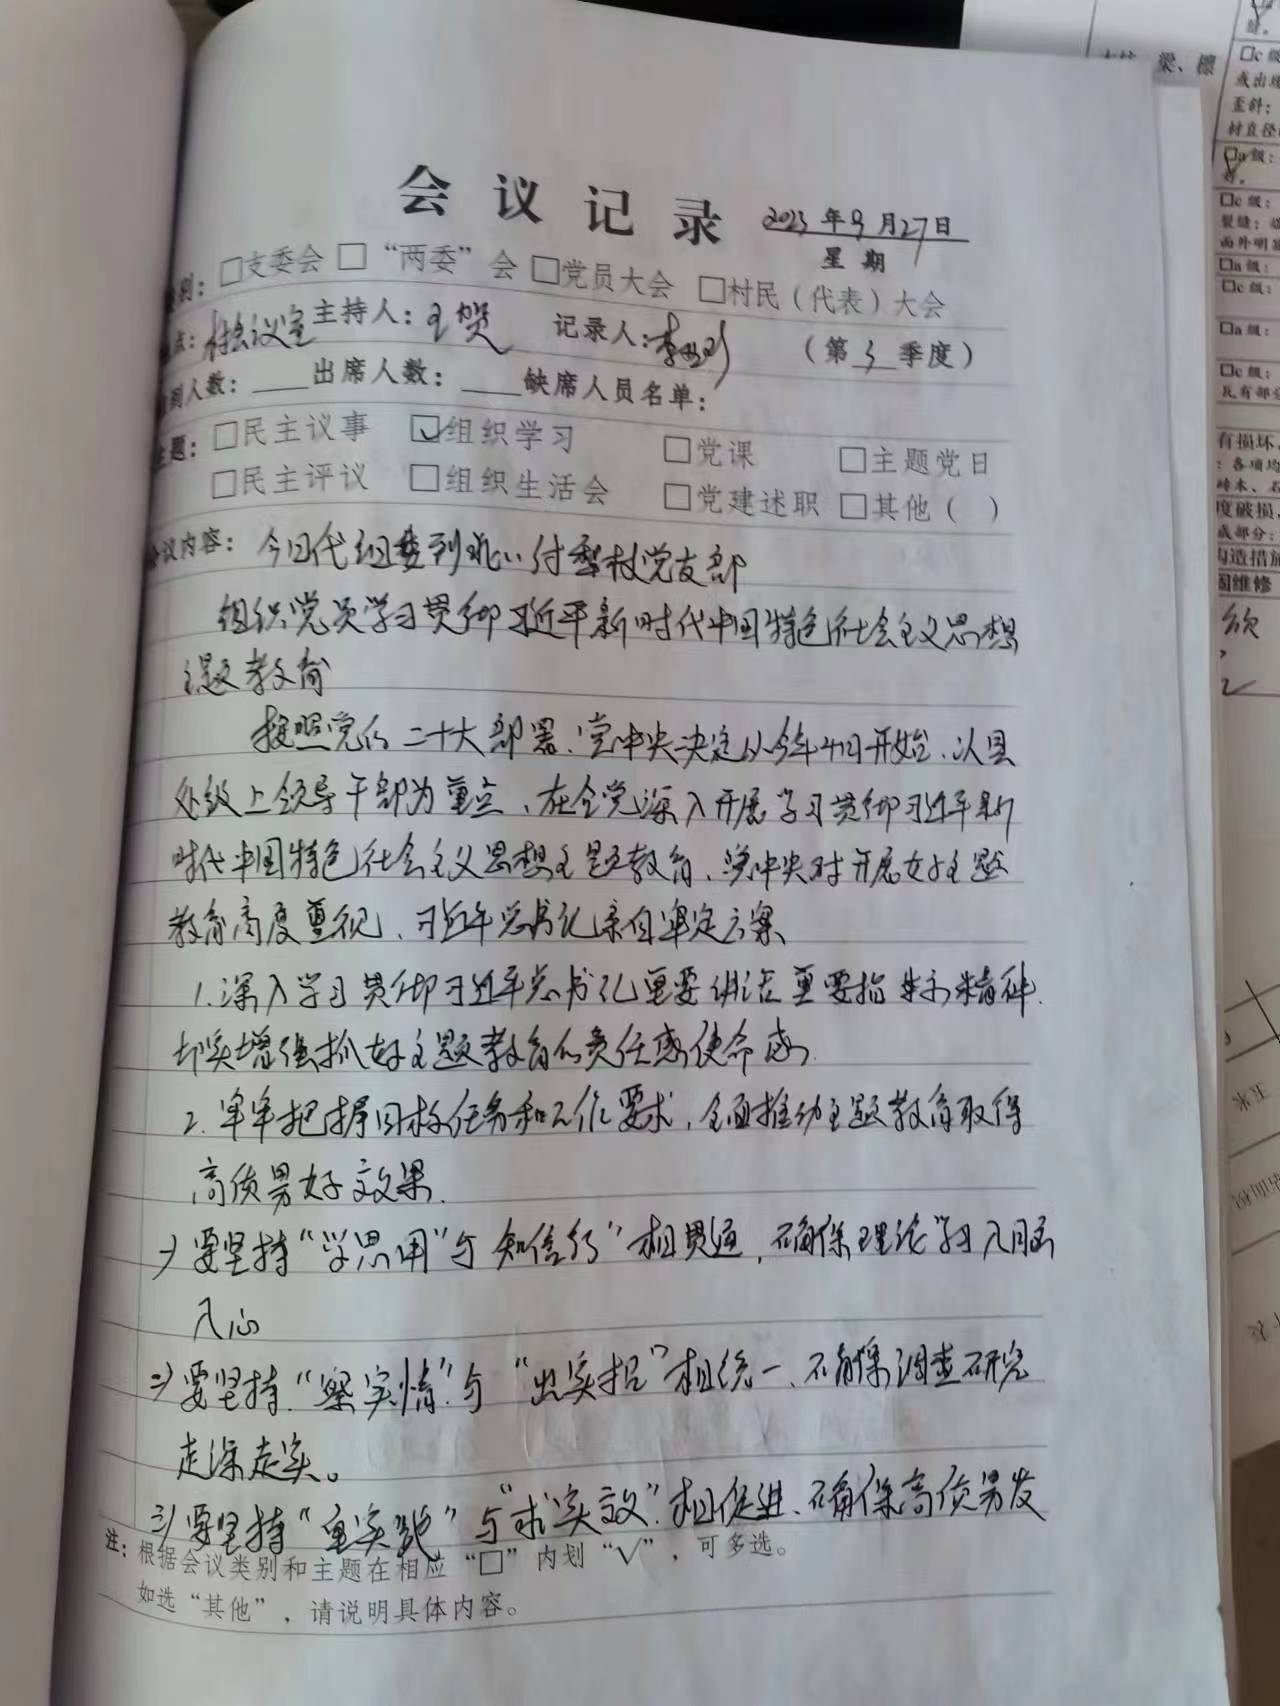 会议记录 2023年9月27日
星期
别：□支委会 □“两委”会 □党员大会 □村民（代表）大会
点：村会议室 主持人：王 记录人：李 （第3季度）
到人数：____出席人数：____缺席人员名单：
主题：□民主议事 ☑组织学习 □党课 □主题党日
□民主评议 □组织生活会 □党建述职 □其他（ ）
会议内容：今日代组 村党支部
组织党员学习贯彻习近平新时代中国特色社会主义思想
主题教育
按照党的二十大部署、党中央决定从今年4月开始、以县
处级上领导干部为重点、在全党深入开展学习贯彻习近平新
时代中国特色社会主义思想主题教育、党中央对开展好主题
教育高度重视、习近平总书记亲自审定方案、
1.深入学习贯彻习近平总书记重要讲话重要指示精神.
切实增强抓好主题教育的责任感使命感.
2.牢牢把握目标任务和工作要求，全面推动主题教育取得
高质量好效果.
1)要坚持“学思用”与 知信行”相贯通，确保理论学习入脑
入心
2)要坚持“察实情”与“出实招”相统一、确保调查研究
走深走实。
3)要坚持“重实践”与“求实效”相促进、确保高质量发
注：根据会议类别和主题在相应“□”内划“√”，可多选。
如选“其他”，请说明具体内容。